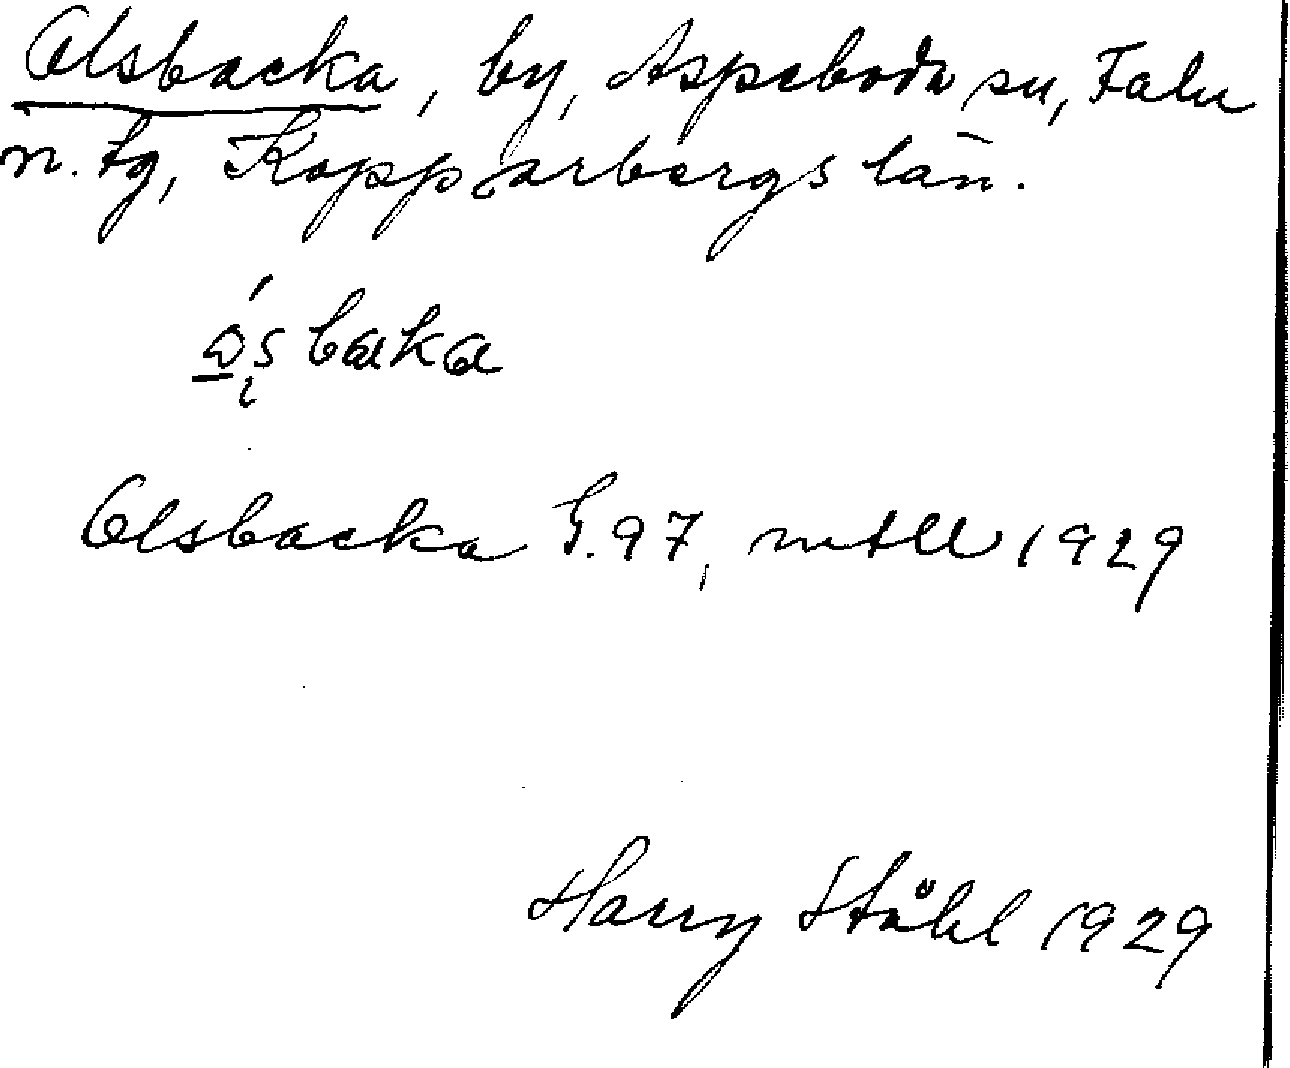 Olsbacka, by, Aspeboda sn, Falu
n. tg, Kopparbergs län.
Olsbacka G. 97, mtll 1929
Harry Ståhl 1929